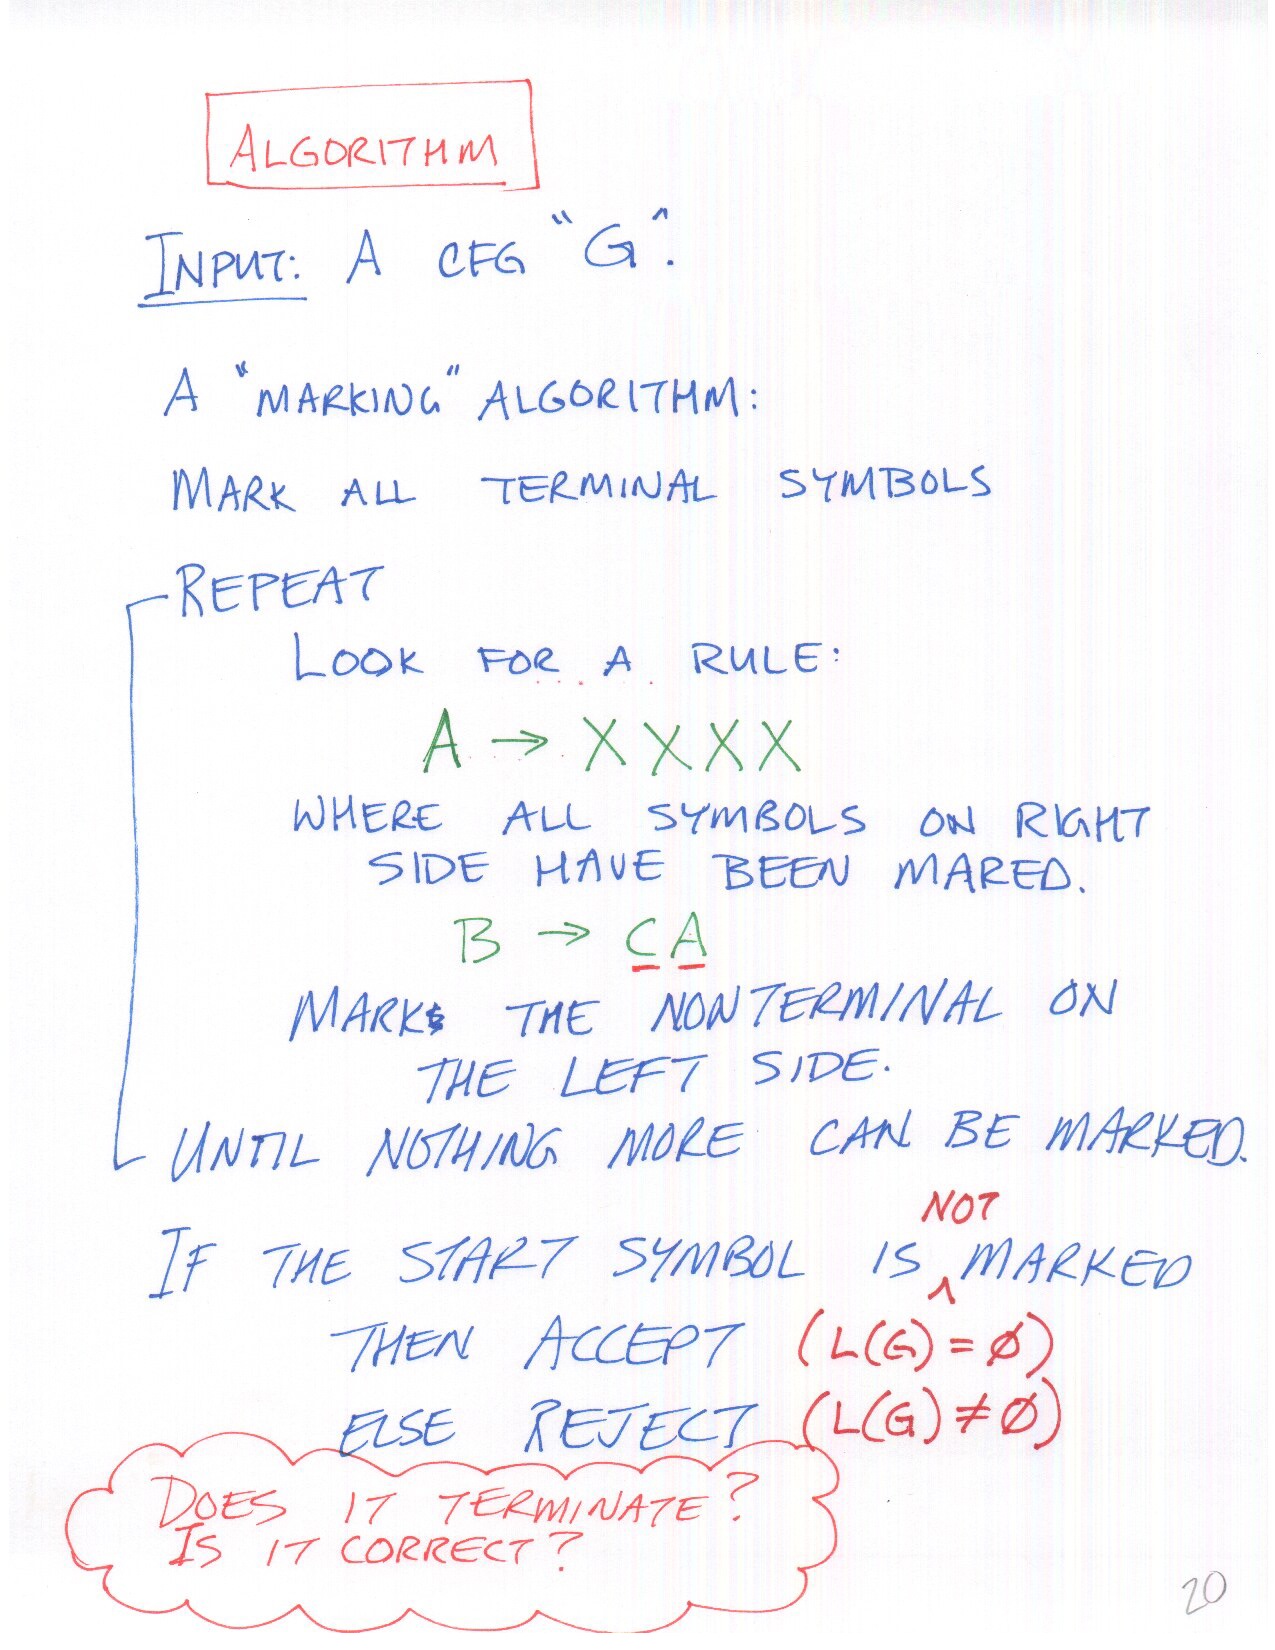 ALGORITHM
INPUT: A CFG "G".
A "MARKING" ALGORITHM:
MARK ALL TERMINAL SYMBOLS
REPEAT
LOOK FOR A RULE:
A → X X X X
WHERE ALL SYMBOLS ON RIGHT
SIDE HAVE BEEN MARED.
B → C A
MARK THE NONTERMINAL ON
THE LEFT SIDE.
UNTIL NOTHING MORE CAN BE MARKED.
IF THE START SYMBOL IS NOT MARKED
THEN ACCEPT (L(G) = ∅)
ELSE REJECT (L(G) ≠ ∅)
DOES IT TERMINATE?
IS IT CORRECT?
20